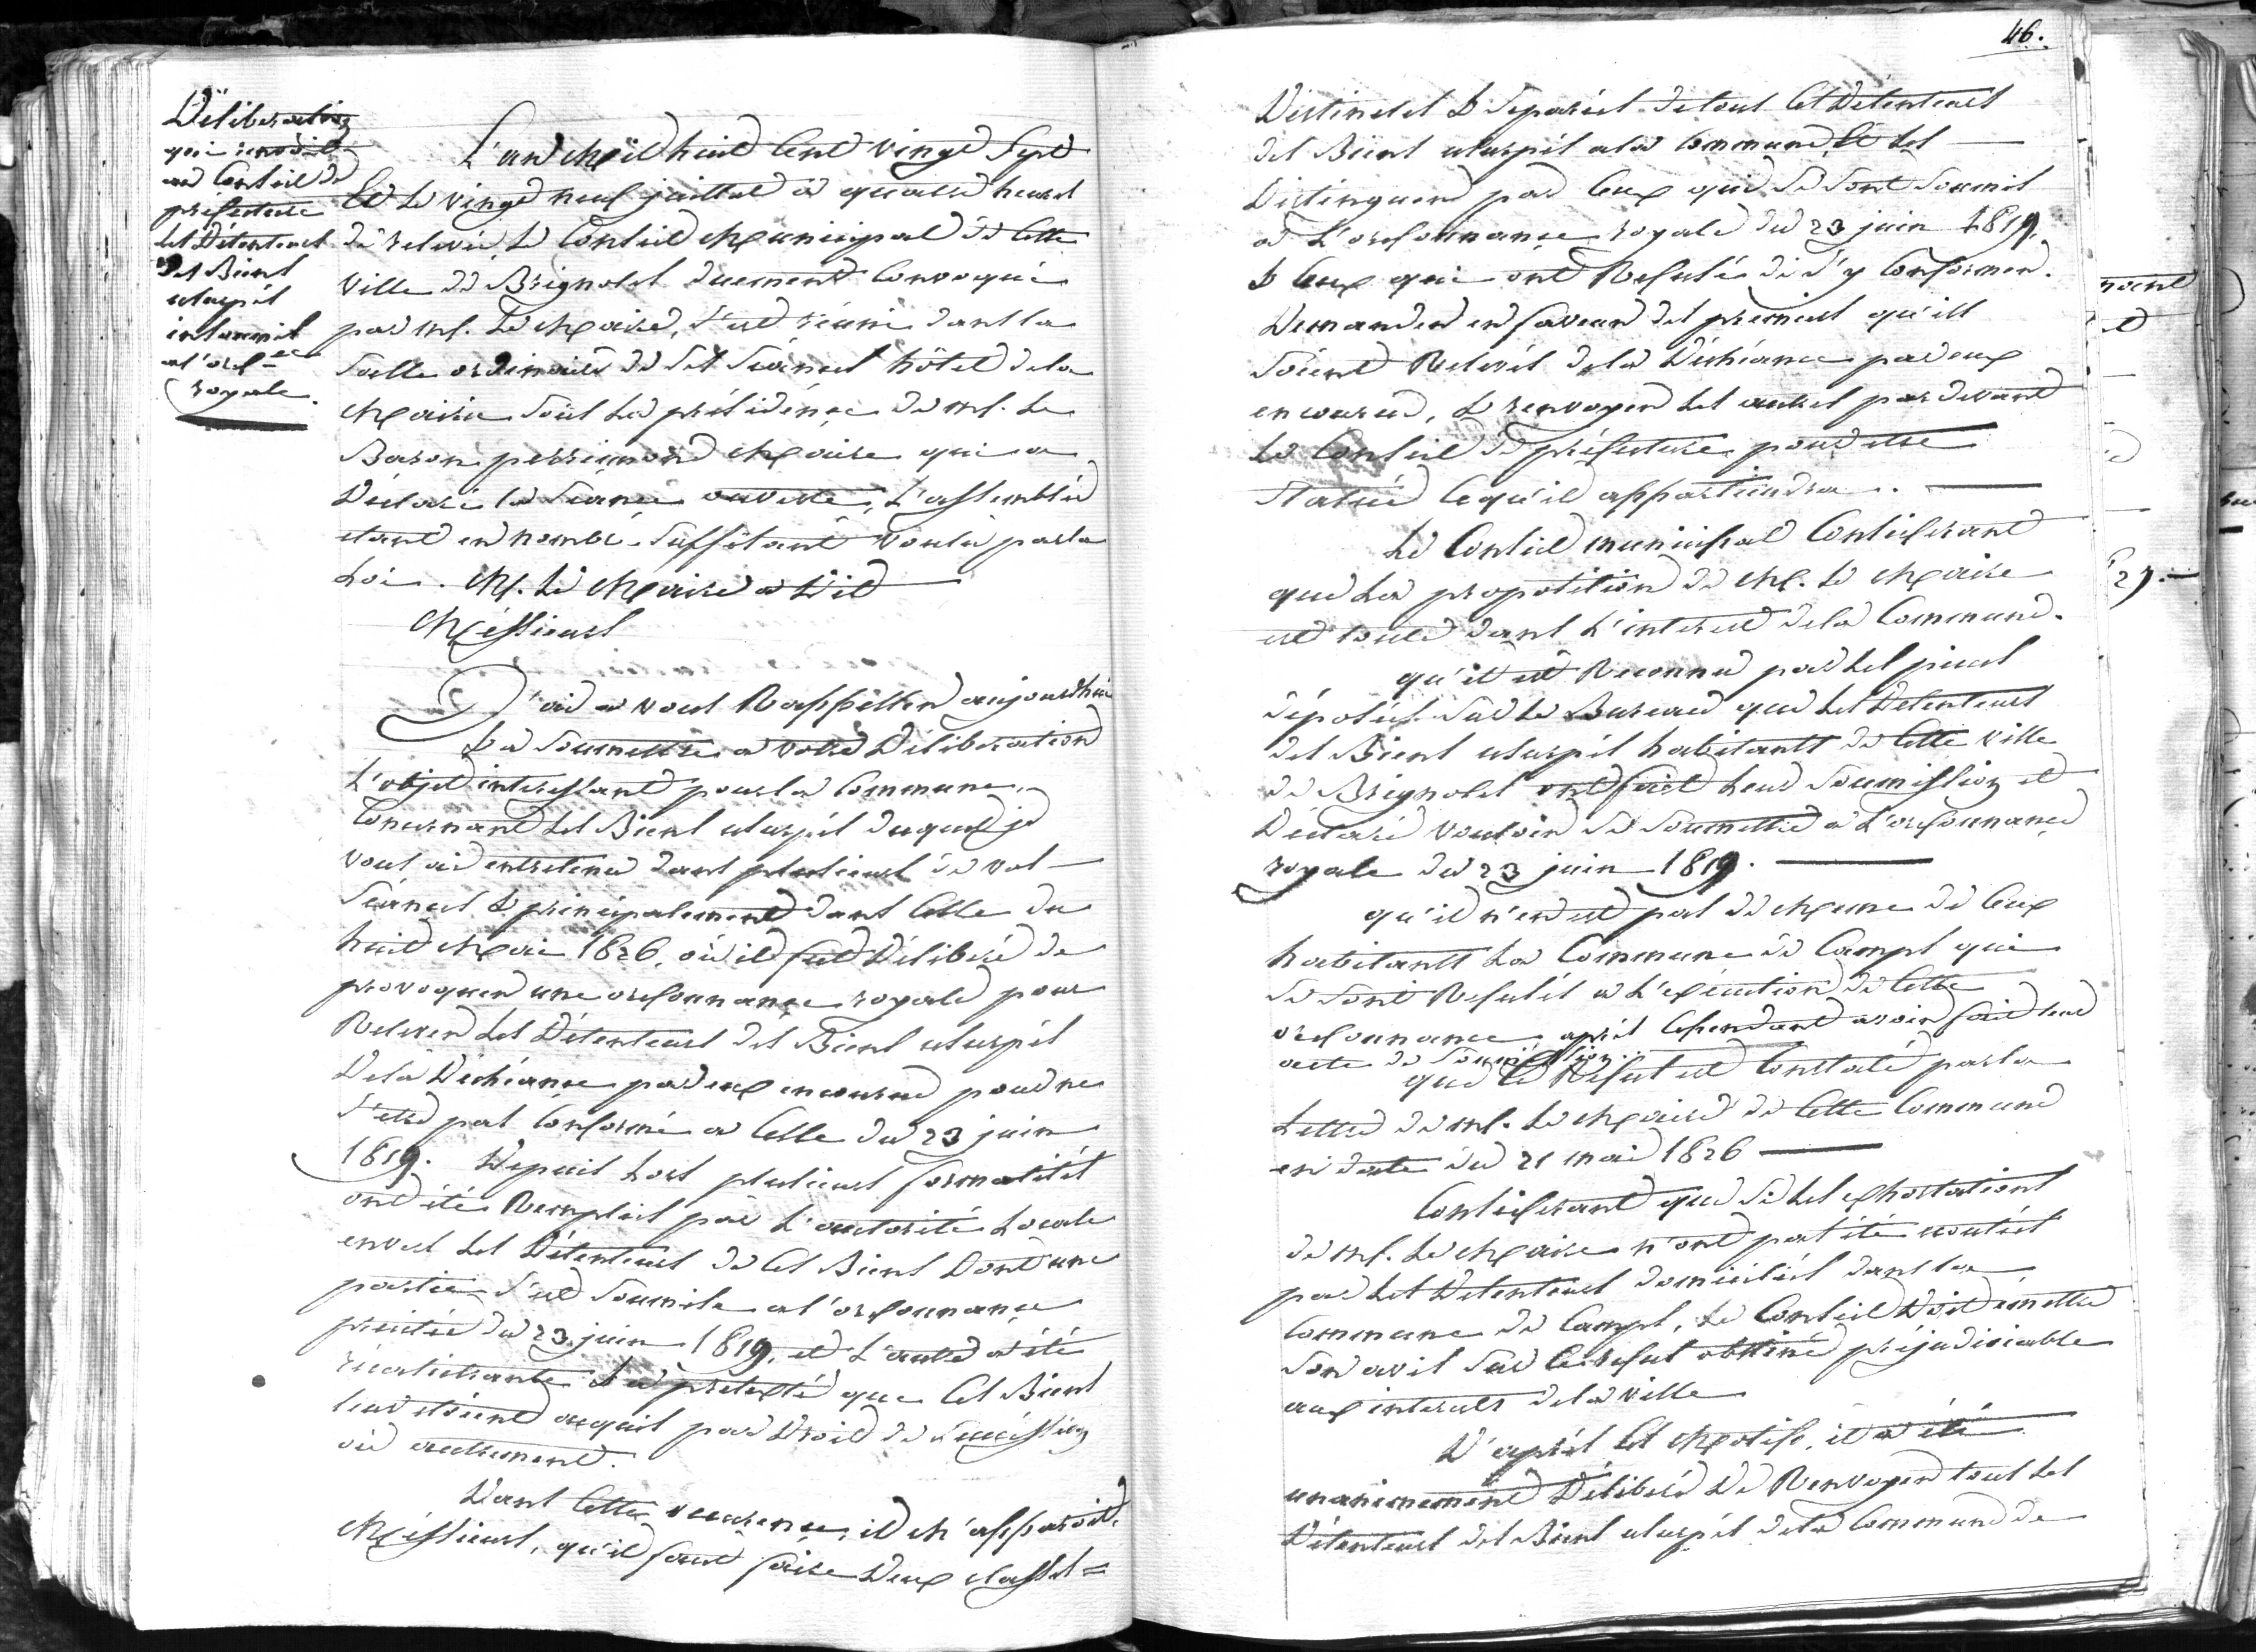 Déliberation
qui renvoit
au Conseil de
prefecture
les Détenteurs
des Biens
usurpés
insoumis
a l'ord.ce
royale.
L'an Mil huit Cent vingt Sept
Et le vingt neuf juillet à quatre heures
de relevée, le Conseil Municipal de Cette
ville de Brignoles duement Convoqué
par Mr. le Maire, s'est réuni dans la
Salle ordinaire de Ses Séances hôtel de la
Mairie Sous la présidence de Mr. le
Baron perrimond Maire qui a
Déclaré la Séance ouverte, l'assemblée
etant en nombre Suffisant voulu par la
Loi. Mr. le Maire a Dit
Messieurs
J'ai a vous Rappeller aujourdhui
& a Soumettre a votre Déliberation
L'objet interessant pour la Commune,
Concernant les Biens usurpés duquel je
vous ai entretenu dans plusieurs de vos
Séances & principalement dans Celle du
huit Mai 1826, où il fut Déliberé de
provoquer une ordonnance royale pour
Relever les Détenteurs des Biens usurpés
De la Dechéance par eux encourue pour ne
s'etre pas Conformé a Celle du 23 juin
1819. Depuis lors plusieurs formalités
ont été Remplies par L'autorité Locale
envers les Détenteurs de Ces Biens Dont une
partie s'est Soumise a l'ordonnance
précitée du 23 juin 1819, et L'autre a été
récalcitrante & a pretexté que Ces Biens
leur etoient acquis par Droit de Succession
ou autrement.
Dans Cette occurence, il M'apparoit,
Messieurs, qu'il faut faire Deux classes =
46.
Distinctes & Separées de tous Ces Détenteurs
des Biens usurpés a la Commune, Et les
Distinguer par Ceux qui se sont Soumis
a L'ordonnance royale du 23 juin 1819,
& Ceux qui ont Refusé de s'y Conformer.
Demander en faveur des premiers qu'ils
Soient Relevés de la Déchéance par eux
encourue, & renvoyer les autres par devant
le Conseil de préfecture pour etre
Statué Ce qu'il appartiendra.
Le Conseil municipal Considerant
que la proposition de Mr. le Maire
est toute dans L'interet de la Commune.
qu'il est Reconnu par les pieces
déposées sur le Bureau que les Détenteurs
des Biens usurpés habitants de Cette ville
de Brignoles ont fait leur Soumission et
Déclaré vouloir se Soumettre a L'ordonnance
royale du 23 juin 1819.
qu'il n'en est pas de Meme de Ceux
habitants la Commune de Camps qui
se sont Refusés a L'exécution de Cette
ordonnance après Cependant avoir fait leur
acte de Soumission.
que Ce Refus est Constaté par la
Lettre de Mr. le Maire de Cette Commune
en date du 21 mai 1826
Considerant que si les exhortations
de Mr. le Maire n'ont pas été ecoutées
par les Détenteurs domiciliés dans la
Commune de Camps, le Conseil Doit emettre
son avis sur Ce refus obstiné préjudiciable
aux interets de la ville
D'après Ces Motifs, il a été
unanimement Déliberé De Renvoyer tous les
Détenteurs des Biens usurpés de la Commune de